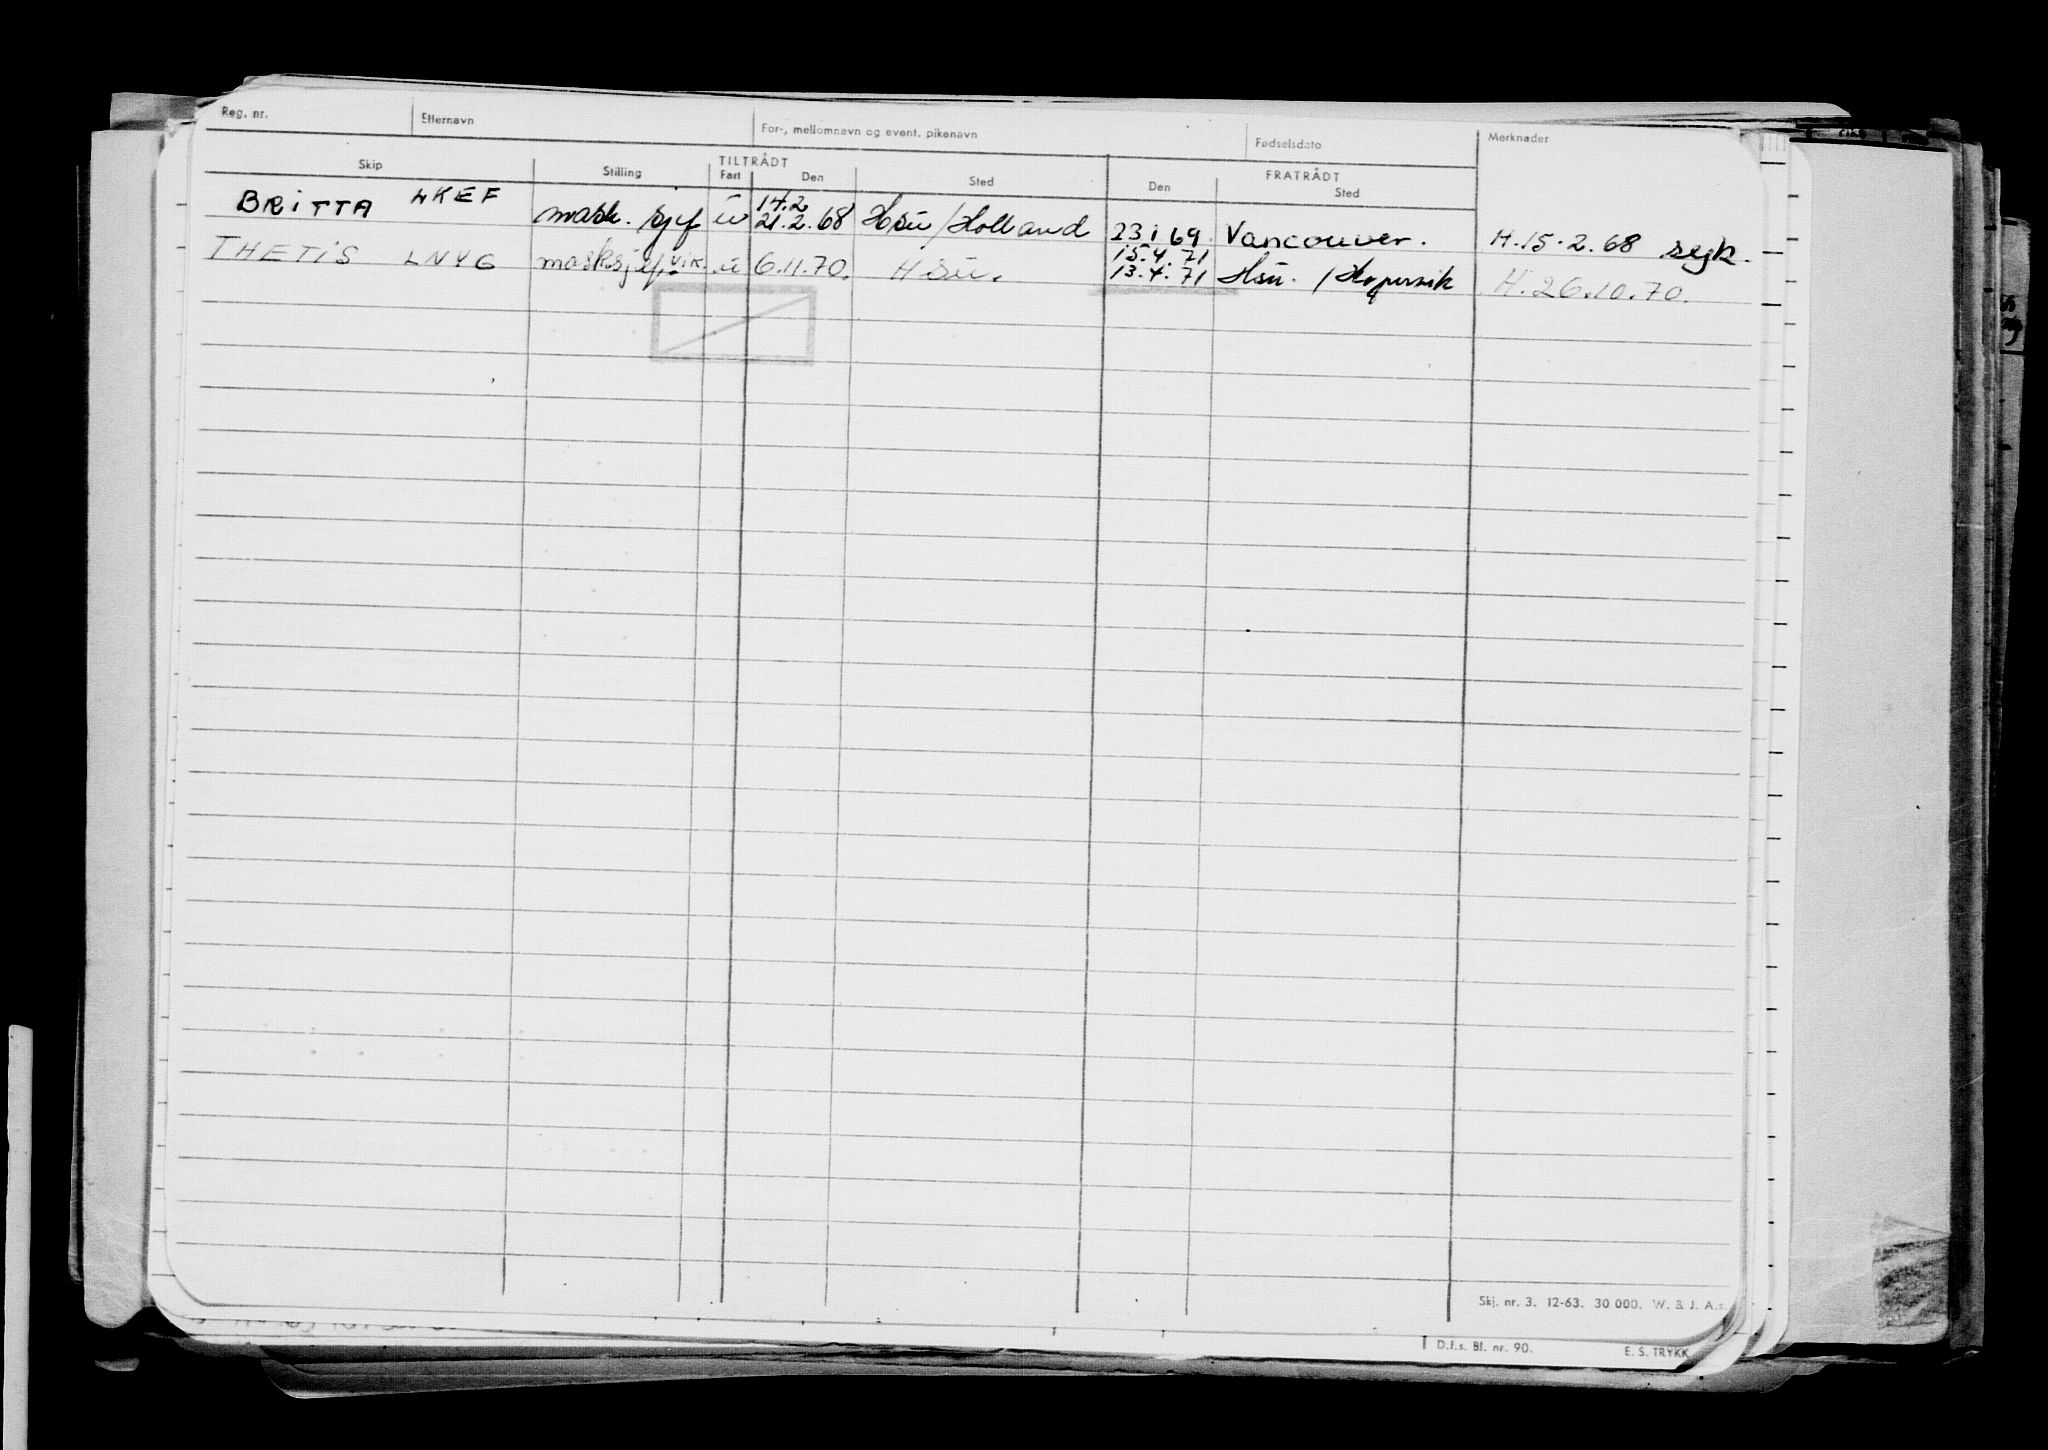 Reg. nr. Etternavn For-, mellomnavn og event. pikenavn Fødselsdato Merknader
TILTRÅDT FRATRÅDT
Skip Stilling Fart Den Sted Den Sted
14.2
BRITTA LKEF mask. sjef u 21.2.68 Hsu/Holland 23 1 69. Vancouver. H.15.2.68 segk.
15.4.71
THETIS LNVG masksjef, vik. u 6.11.70. Hsu. 13.4.71 Hsu. / H. 26.10.70.
Skj. nr. 3. 12-63. 30 000. W. & J. A.s.
D.f.s. Bl. nr. 90. E. S. TRYKK